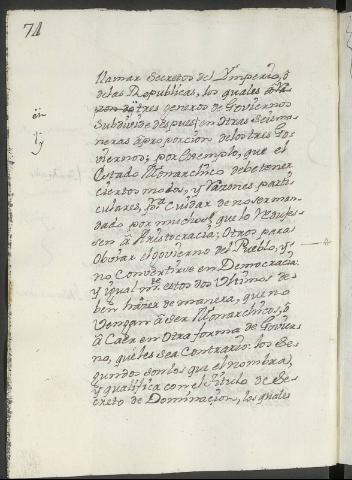 74
llamar secretos del Ymperio, ò
delas Republicas, los quales
tres generos de Goviernos
Subdivide despues en otras seis ma-
neras à proporcion delos tres Go-
viernos; por exemplo, que el
Estado Monarchico debe tener
ciertos modos, y Razones parti-
culares, pª cuidar de no ser man-
dado por muchos, que lo Redujes-
sen à Aristocracia; otros para
Obviar el govierno del Pueblo, y
no Convertirse en Democracia:
y igual mte estos dos Ultimos de-
ben hazer de manera, que no
Vengan à ser Monarchicos, ò
à Caer en otra forma de Govier-
no, que les sea Contrario: los Se-
gundos son los que el nombra,
y qualifica con el titulo de Se-
creto de Dominacion, los quales